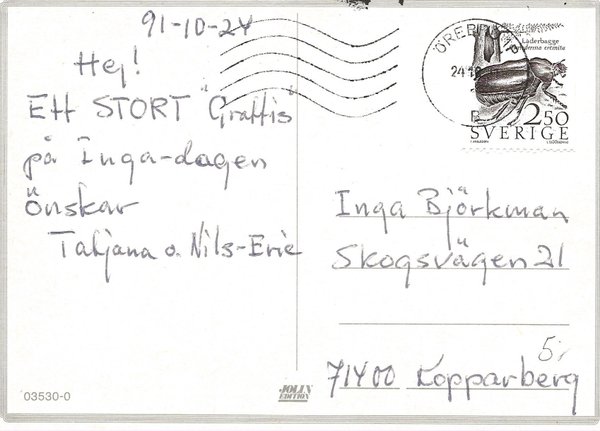 91-10-24
Hej!
Ett STORT "Grattis"
på Inga-dagen
önskar
Tatjana o. Nils-Eric
ÖREBRO
24 10
Läderbagge
Osmoderma eremita
2.50
SVERIGE
Inga Björkman
Skogsvägen 21
71400 Kopparberg
5:-
03530-0
JOLIN
EDITION